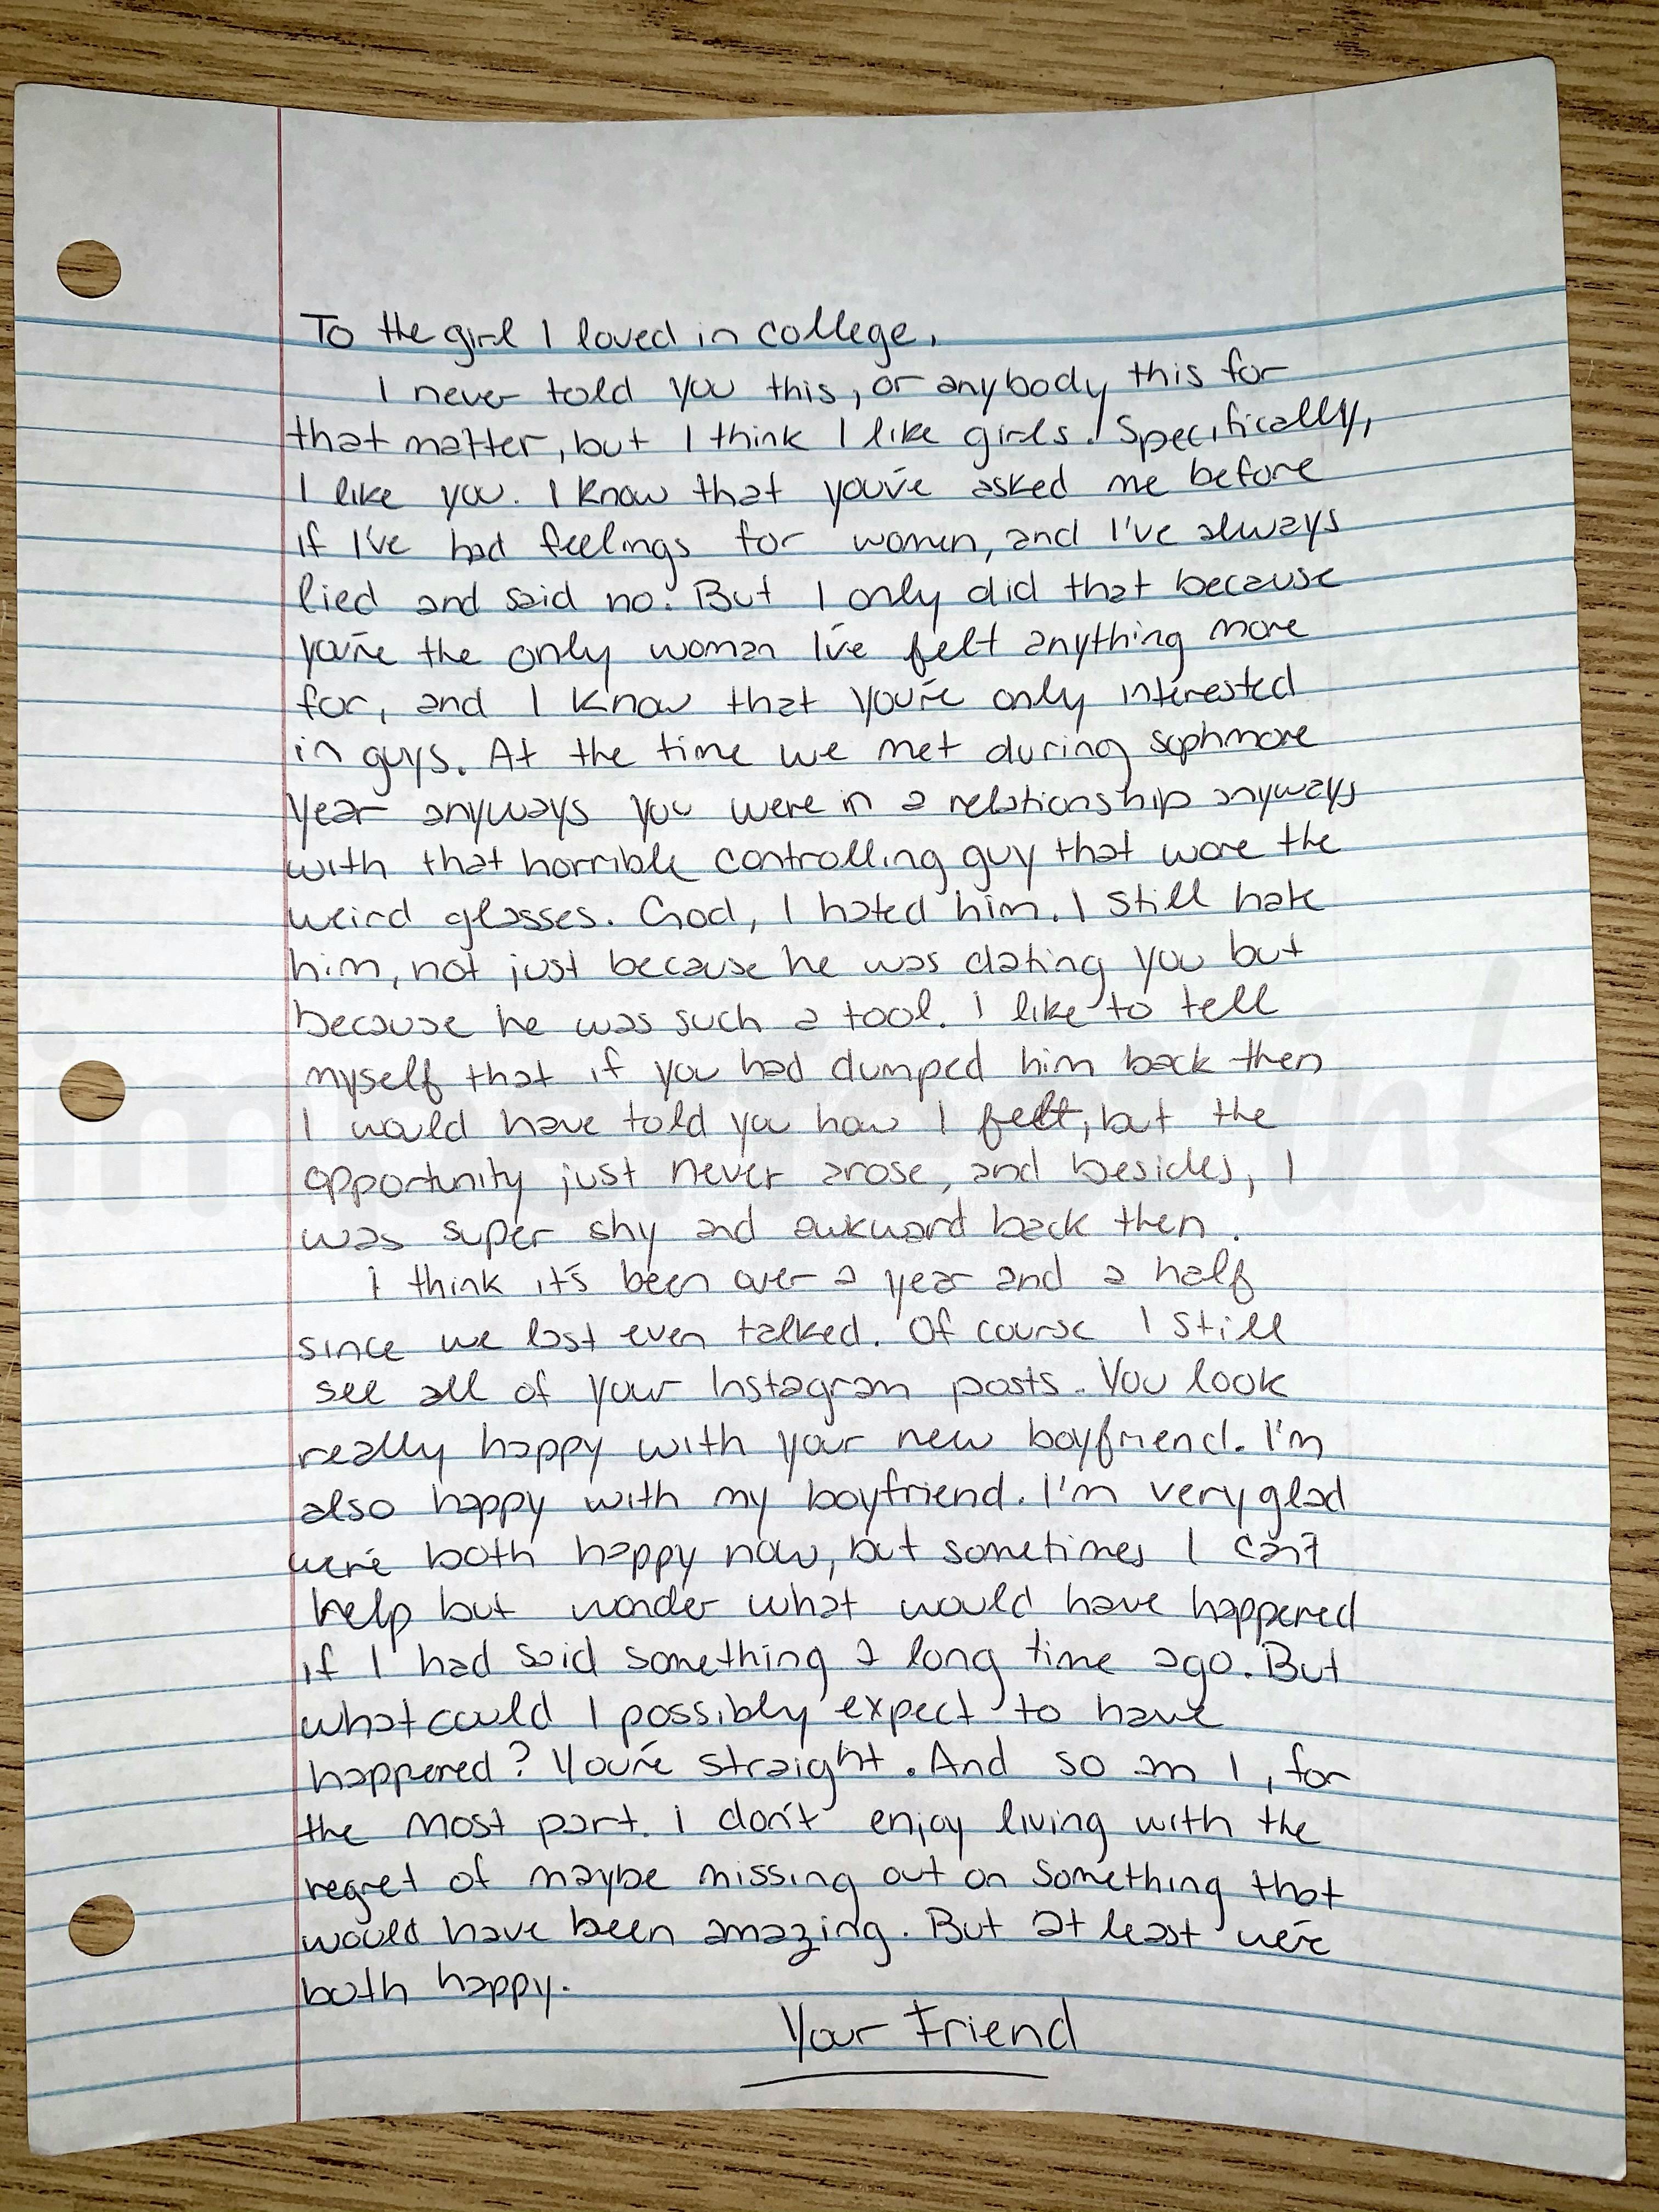 To the girl I loved in college,
I never told you this, or anybody this for
that matter, but I think I like girls. Specifically,
I like you. I know that you've asked me before
if I've had feelings for women, and I've always
lied and said no. But I only did that because
you're the only woman I've felt anything more
for, and I know that you're only interested
in guys. At the time we met during sophmore
year anyways you were in a relationship anyways
with that horrible controlling guy that wore the
weird glasses. God, I hated him. I still hate
him, not just because he was dating you but
because he was such a tool. I like to tell
myself that if you had dumped him back then
I would have told you how I felt, but the
opportunity just never arose, and besides, I
was super shy and awkward back then.
I think it's been over a year and a half
since we last even talked. Of course I still
see all of your Instagram posts. You look
really happy with your new boyfriend. I'm
also happy with my boyfriend. I'm very glad
we're both happy now, but sometimes I can't
help but wonder what would have happened
if I had said something a long time ago. But
what could I possibly expect to have
happened? You're straight. And so am I, for
the most part. I don't enjoy living with the
regret of maybe missing out on something that
would have been amazing. But at least we're
both happy.
Your Friend